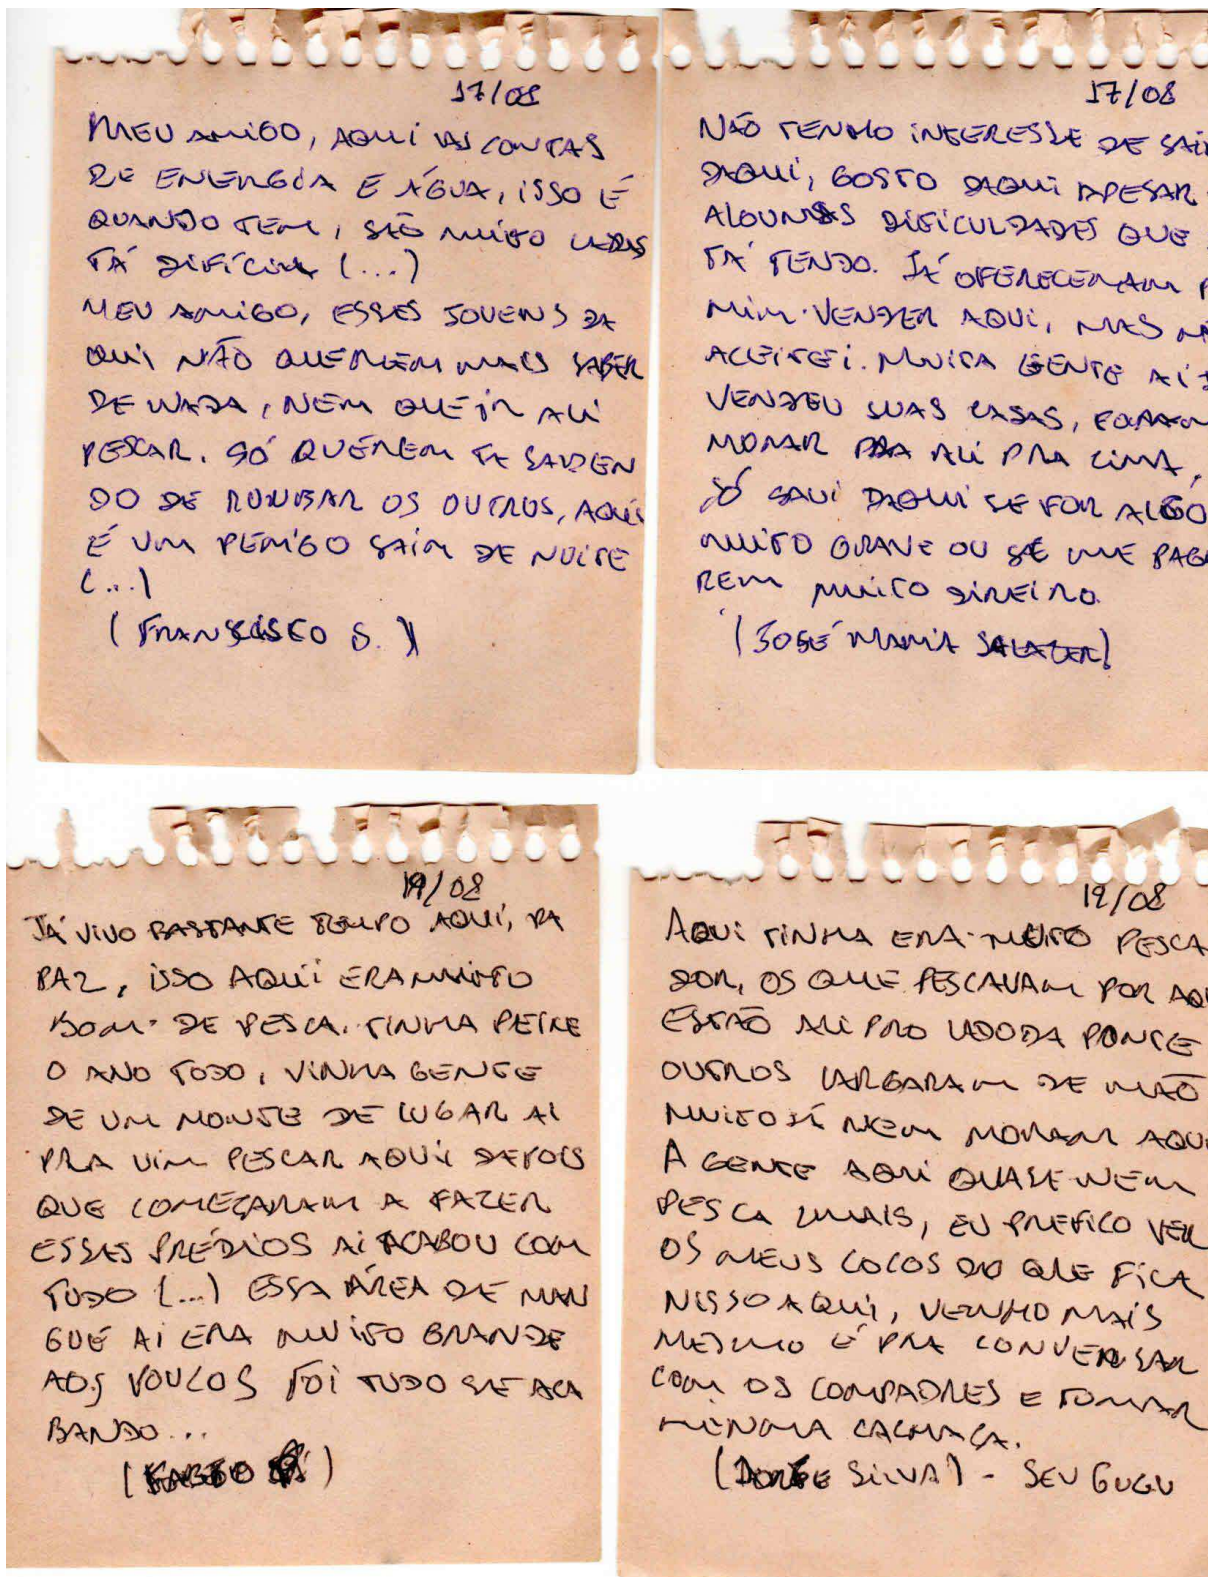 17/08
MEU AMIGO, AQUI AS CONTAS
DE ENERGIA E ÁGUA, ISSO É
QUANDO TEM, SÃO MUITO
TÁ DIFÍCIL (...)
MEU AMIGO, ESSES JOVENS DA
QUI NÃO QUEREM MAIS SABER
DE NADA, NEM QUE IR ALI
PESCAR. SÓ QUEREM
DO DE ROUBAR OS OUTROS, AQUI
É UM PERIGO SAIR DE NOITE
(...)
(FRANSCISCO S.)
17/08
NÃO TENHO INTERESSE DE SAIR
DAQUI, GOSTO DAQUI APESAR
ALGUMAS DIFICULDADES QUE
TÁ TENDO. JÁ OFERECERAM P
MIM VENDER AQUI, MAS NÃ
ACEITEI. MUITA GENTE AÍ J
VENDEU SUAS CASAS, FORAM
MORAR PRA ALI PRA CIMA,
SÓ SAIU DAQUI SE FOR ALGO
MUITO GRAVE OU SE ME PAGA
REM MUITO DINEIRO.
(JOSÉ MARIA SALAZER)
19/08
JÁ VIVO BASTANTE TEMPO AQUI, RA
PAZ, ISSO AQUI ERA MUITO
BOM DE PESCA. TINHA PEIXE
O ANO TODO, VINHA GENTE
DE UM MONTE DE LUGAR AI
PRA VIM PESCAR AQUI DEPOIS
QUE COMEÇARAM A FAZER
ESSES PRÉDIOS AI ACABOU COM
TUDO (...) ESSA ÁREA DE MAN
GUE AÍ ERA MUITO GRANDE
AOS POUCOS FOI TUDO SE ACA
BANDO...
19/08
AQUI TINHA ERA MUITO PESCA
DOR, OS QUE PESCAVAM POR AQUI
ESTÃO ALI PRO LADO DA PONTE
OUTROS LARGARAM DE MÃO
MUITO JÁ NEM MORAM AQUI
A GENTE AQUI QUASE NEM
PESCA MAIS, EU PREFICO VER
OS MEUS COCOS DO QUE FICA
NISSO AQUI, VENHO MAIS
MESMO É PRA CONVERSAR
COM OS COMPADRES E TOMAR
MINHA CACHAÇA.
(JORGE SILVA) - SEU GUGU